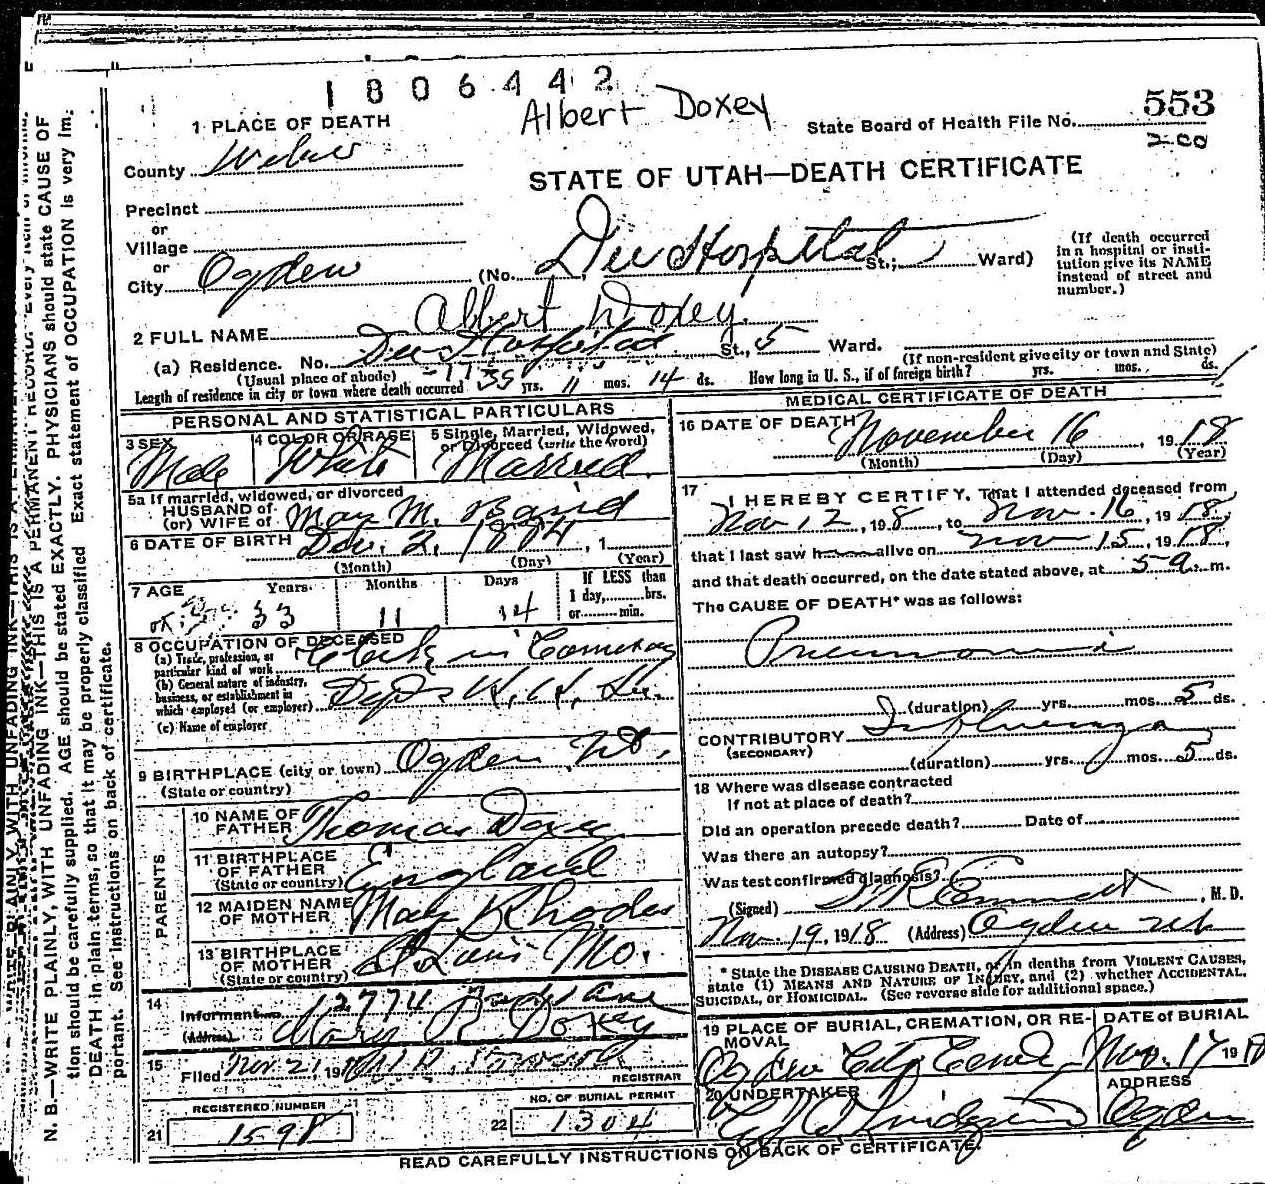 1806442
Albert Doxey
State Board of Health File No. 553
200
1 PLACE OF DEATH
County Weber
STATE OF UTAH—DEATH CERTIFICATE
Precinct
or
Village
or
City Ogden (No. Dee Hospital St.; Ward)
(If death occurred in a hospital or institution give its NAME instead of street and number.)
2 FULL NAME Albert Doxey
(a) Residence. No. Dee Hospital St., 5 Ward.
(Usual place of abode) (If non-resident give city or town and State)
Length of residence in city or town where death occurred yrs. 11 mos. 14 ds. How long in U. S., if of foreign birth? yrs. mos. ds.
PERSONAL AND STATISTICAL PARTICULARS
3 SEX Male
4 COLOR OR RACE White
5 Single, Married, Widowed, or Divorced (write the word) Married
5a If married, widowed, or divorced
HUSBAND of
(or) WIFE of May M. Baird
6 DATE OF BIRTH Dec. 2, 1884, 1
(Month) (Day) (Year)
7 AGE Years 33 Months 11 Days 14 If LESS than 1 day, hrs. or min.
8 OCCUPATION OF DECEASED
(a) Trade, profession, or particular kind of work Clerk in
(b) General nature of industry, business, or establishment in which employed (or employer)
(c) Name of employer
9 BIRTHPLACE (city or town) Ogden, Ut.
(State or country)
PARENTS
10 NAME OF FATHER Thomas Doxey
11 BIRTHPLACE OF FATHER (State or country) England
12 MAIDEN NAME OF MOTHER Mary Rhodes
13 BIRTHPLACE OF MOTHER (State or country) St Louis Mo.
14 2774
Informant
(Address) Mary R. Doxey
15 Filed Nov. 21, 19
REGISTRAR
REGISTERED NUMBER
21 1598
NO. OF BURIAL PERMIT
22 1304
MEDICAL CERTIFICATE OF DEATH
16 DATE OF DEATH November 16, 1918
(Month) (Day) (Year)
17 I HEREBY CERTIFY, That I attended deceased from
Nov 12, 198, to Nov. 16, 1918,
that I last saw h alive on Nov 15, 1918,
and that death occurred, on the date stated above, at 5 a. m.
The CAUSE OF DEATH* was as follows:
Pneumonia
(duration) yrs. mos. 5 ds.
CONTRIBUTORY Influenza
(SECONDARY)
(duration) yrs. mos. 5 ds.
18 Where was disease contracted
if not at place of death?
Did an operation precede death? Date of
Was there an autopsy?
Was test confirmed diagnosis?
(Signed) , M. D.
Nov. 19, 1918 (Address) Ogden Ut
* State the DISEASE CAUSING DEATH, or in deaths from VIOLENT CAUSES,
state (1) MEANS AND NATURE OF INJURY, and (2) whether ACCIDENTAL,
SUICIDAL, or HOMICIDAL. (See reverse side for additional space.)
19 PLACE OF BURIAL, CREMATION, OR REMOVAL Ogden City
DATE OF BURIAL Nov. 17 1918
20 UNDERTAKER
ADDRESS Ogden
READ CAREFULLY INSTRUCTIONS ON BACK OF CERTIFICATE.
N. B.—WRITE PLAINLY, WITH UNFADING INK—THIS IS A PERMANENT RECORD. Every item of
tion should be carefully supplied. AGE should be stated EXACTLY. PHYSICIANS should state CAUSE OF
DEATH in plain terms, so that it may be properly classified. Exact statement of OCCUPATION is very im-
portant. See instructions on back of certificate.